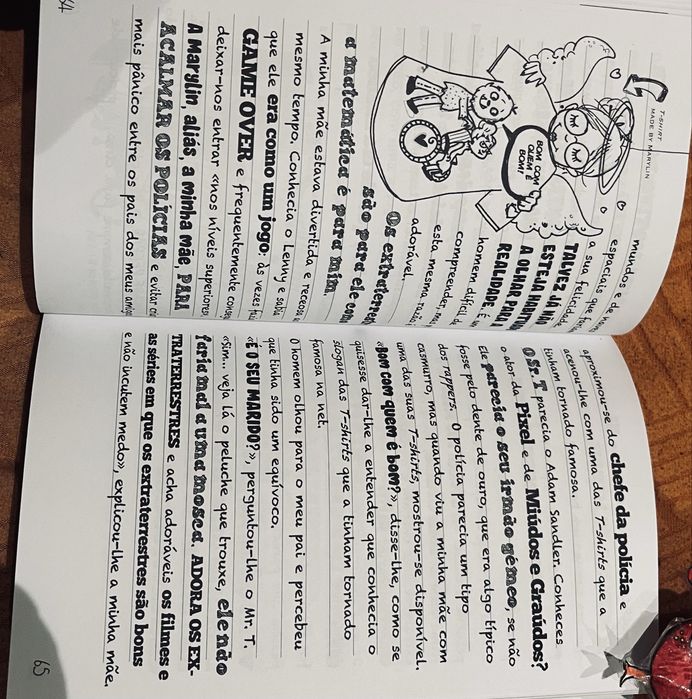 T-SHIRT
MADE BY MARYLIN
BOM COM
QUEM É
BOM!
mundos e de
espaciais que
a sua felicidade
TALVEZ JÁ NÃO
ESTEJA
A OLHAR PARA A
REALIDADE. É
homem difícil
compreender,
esta mesma razão
adorável.
Os
são para ele
a matemática é para mim.
A minha mãe estava divertida e receosa
mesmo tempo. Conhecia o Lenny e
que ele era como um jogo: às vezes
GAME OVER e frequentemente
deixar-nos entrar «nos níveis superiores
A Marylin, aliás, a minha mãe, PARA
ACALMAR OS POLÍCIAS e evitar
mais pânico entre os pais dos meus
64
aproximou-se do chefe da polícia e
acenou-lhe com uma das T-shirts que a
tinham tornado famosa.
O Sr. T parecia o Adam Sandler. Conheces
o ator da Pixel e de Miúdos e Graúdos?
Ele parecia o seu irmão gémeo, se não
fosse pelo dente de ouro, que era algo típico
dos rappers. O polícia parecia um tipo
casmurro, mas quando viu a minha mãe com
uma das suas T-shirts, mostrou-se disponível.
«Bom com quem é bom?», disse-lhe, como se
quisesse dar-lhe a entender que conhecia o
slogan das T-shirts que a tinham tornado
famosa na net.
O homem olhou para o meu pai e percebeu
que tinha sido um equívoco.
«E O SEU MARIDO?», perguntou-lhe o Mr. T.
«Sim... veja lá o peluche que trouxe, ele não
faria mal a uma mosca. ADORA OS EX-
TRATERRESTRES e acha adoráveis os filmes e
as séries em que os extraterrestres são bons
e não incutem medo», explicou-lhe a minha mãe.
65